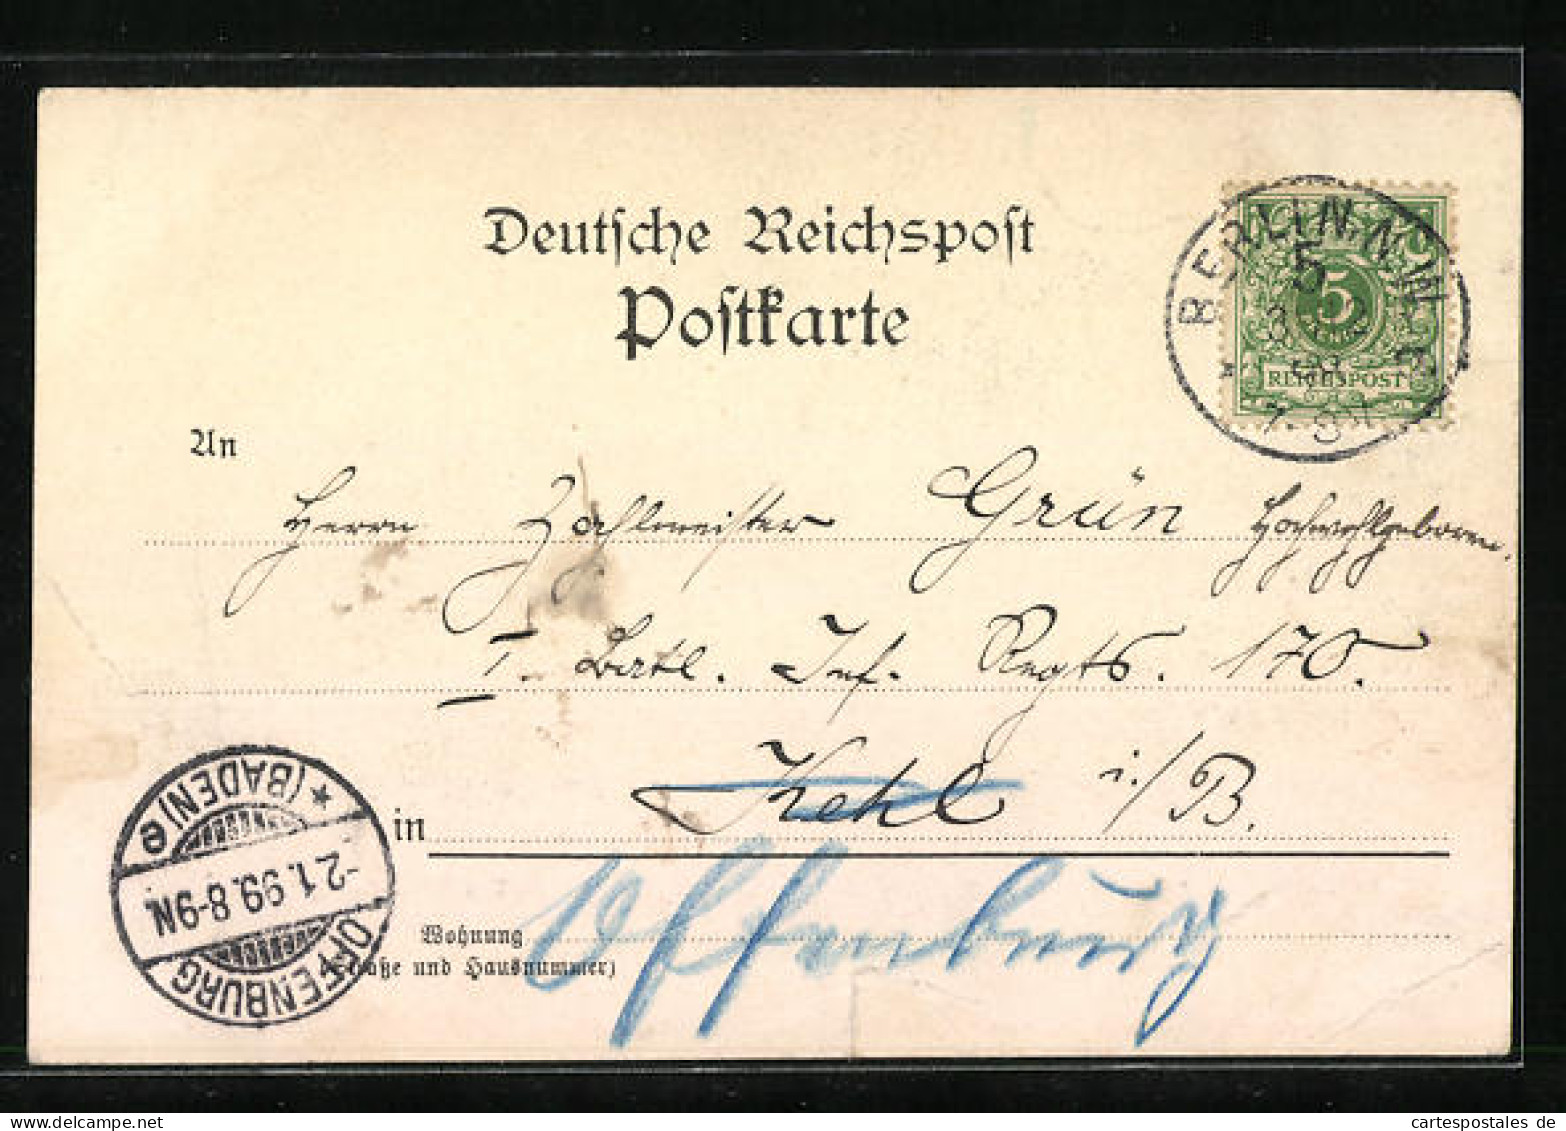 Deutsche Reichspost
Postkarte
BERLIN, N.W.
5
5
REICHSPOST
An
Herrn Zahlmeister Grün Hochwohlgeboren.
I. Batl. Inf. Regts. 170.
in Kehl i./B.
Offenburg
Wohnung
(Straße und Hausnummer)
* (BADEN) e
-2.1.99.8-9N.
OFFENBURG
www.delcampe.net
cartespostales de